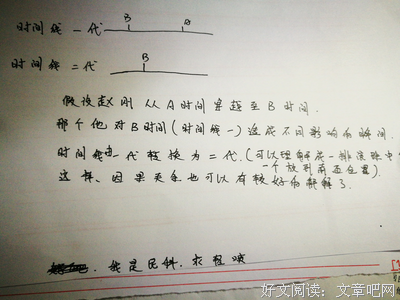 时间线一代 B A
时间线二代 B
假设赵刚从A时间穿越至B时间.
那个他对B时间(时间线一)造成不同影响的瞬间.
时间线由一代替换为二代.(可以理解成一排
一个放到前面位置)
这样、因果关系也可以有较好的解释了.
我是民科.求轻喷
好文阅读:文章吧网